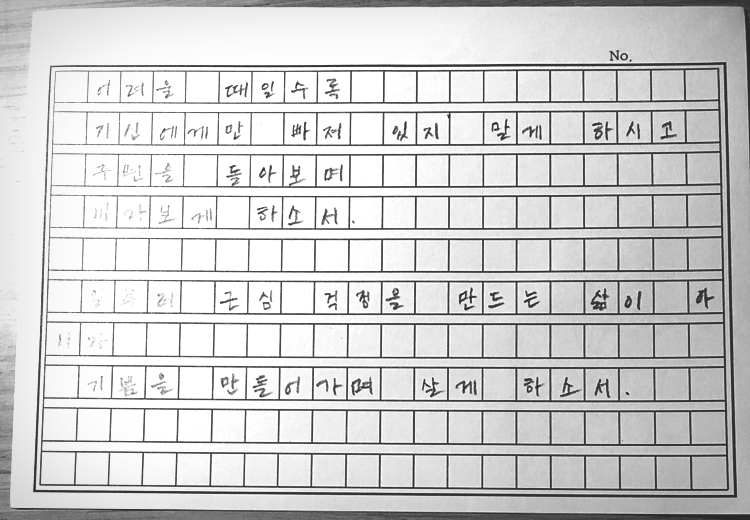 No.
어려울 때일수록
자신에게만 빠져 있지 말게 하시고
주변을 돌아보며
하소서.
근심 걱정을 만드는 삶이 아
기쁨을 만들어가며 살게 하소서.